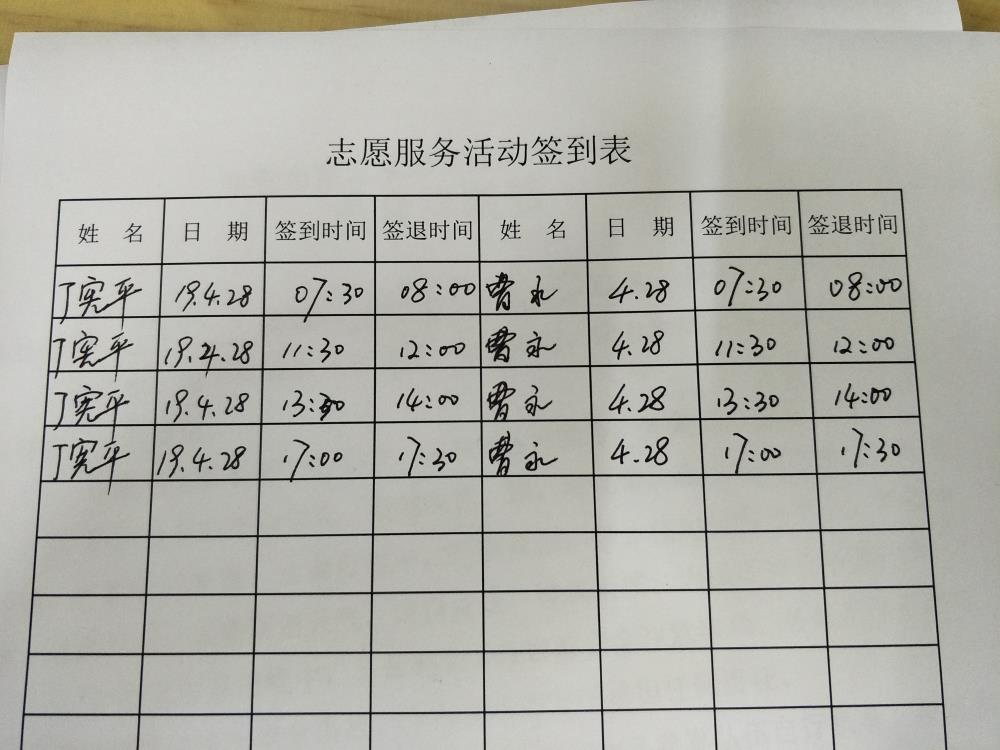 志愿服务活动签到表
姓 名 日 期 签到时间 签退时间 姓 名 日 期 签到时间 签退时间
丁宪平 19.4.28 07:30 08:00 曹永 4.28 07:30 08:00
丁宪平 19.4.28 11:30 12:00 曹永 4.28 11:30 12:00
丁宪平 19.4.28 13:30 14:00 曹永 4.28 13:30 14:00
丁宪平 19.4.28 17:00 17:30 曹永 4.28 17:00 17:30